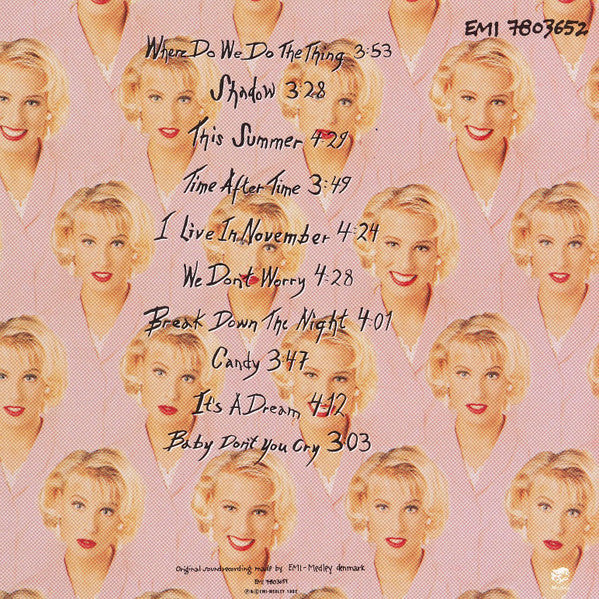 EMI 7803652
Where Do We Do The Thing 3:53
Shadow 3:28
This Summer 4:29
Time After Time 3:49
I Live In November 4:24
We Don't Worry 4:28
Break Down The Night 4:01
Candy 3:47
It's A Dream 4:12
Baby Don't You Cry 3:03
Original soundrecording made by EMI-Medley denmark